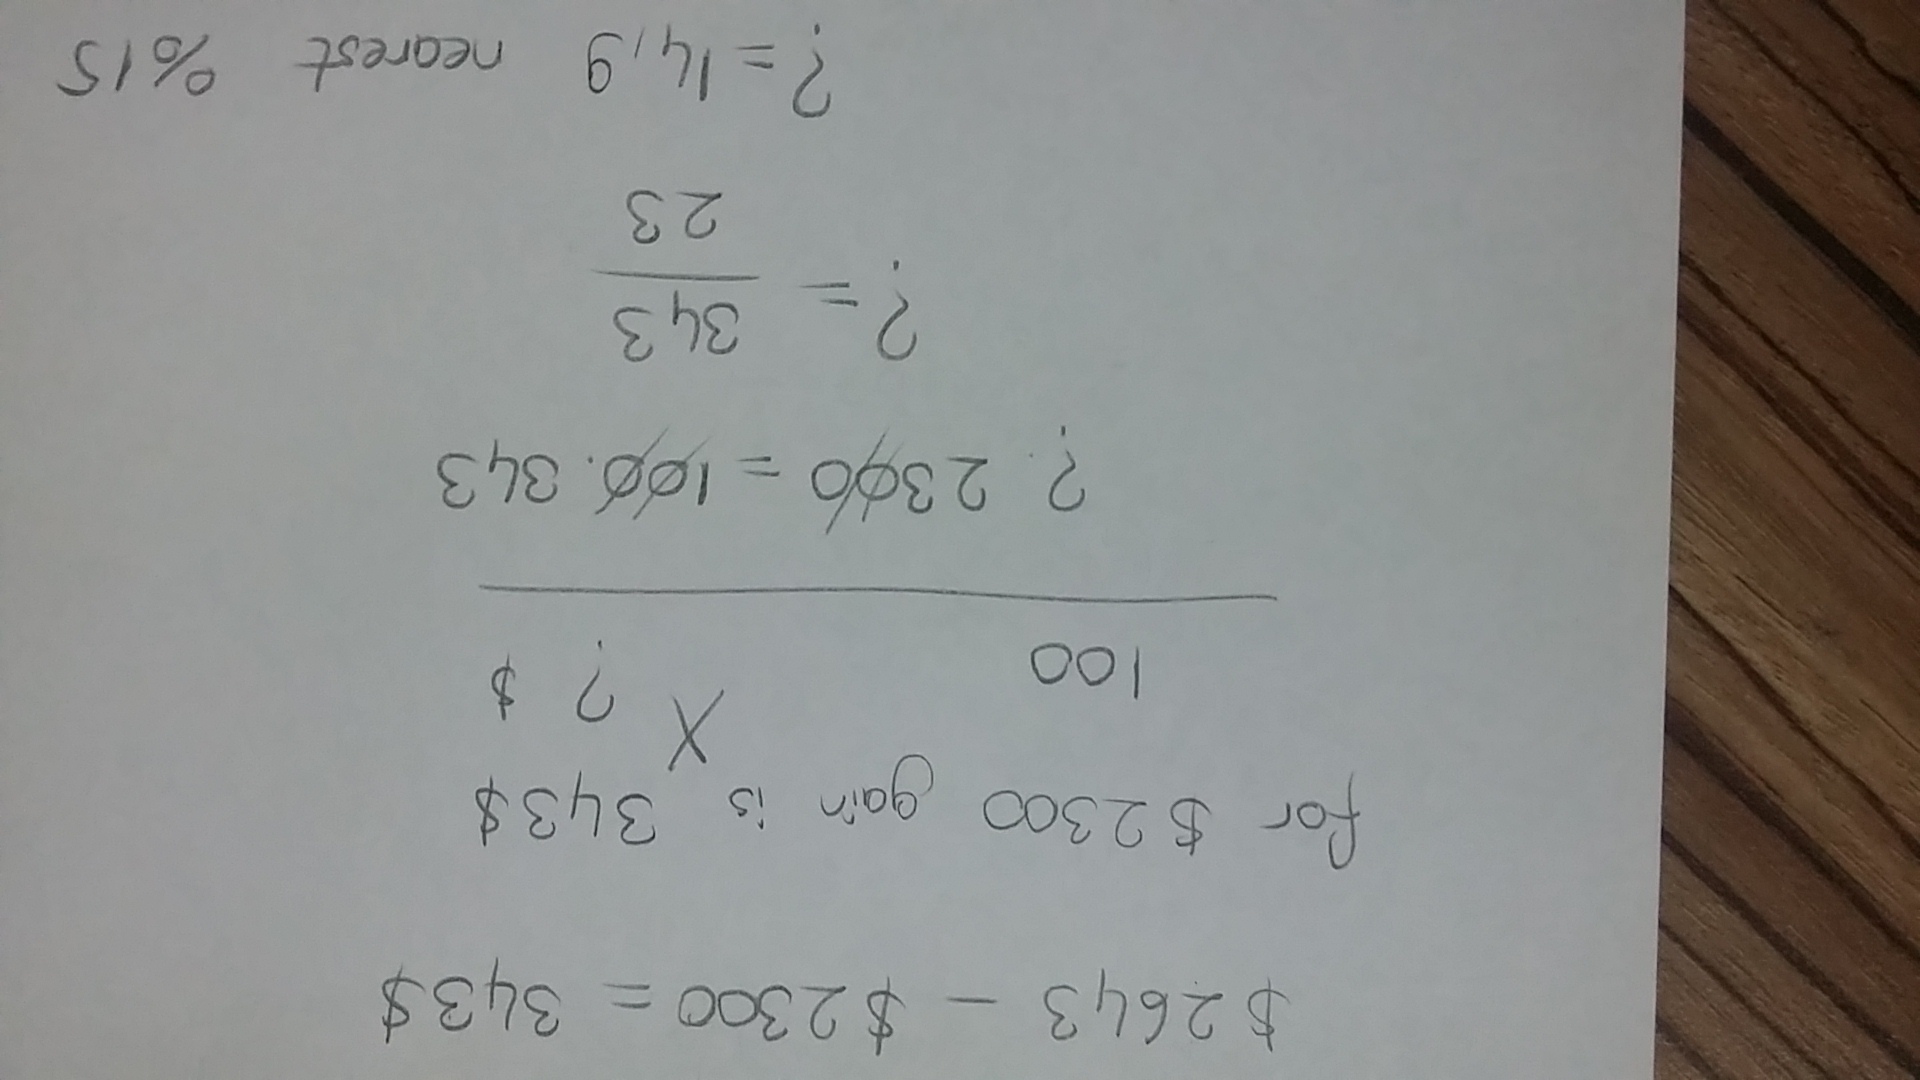 $2643 - $2300 = 343$
for $2300 gain is 343$
100 X ? $
?. 2300 = 100. 343
? = 343
23
? = 14,9 nearest %15